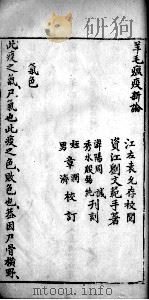 羊毛瘟疫新論
江左袁允存校閱
資江劉文範手著
漷陽周 誠
秀水殷錫純 刊刻
姪章潤
男 濟 校訂
氣色
此疫之氣尸氣也此疫之色敗色也蓋因尸骨橫野